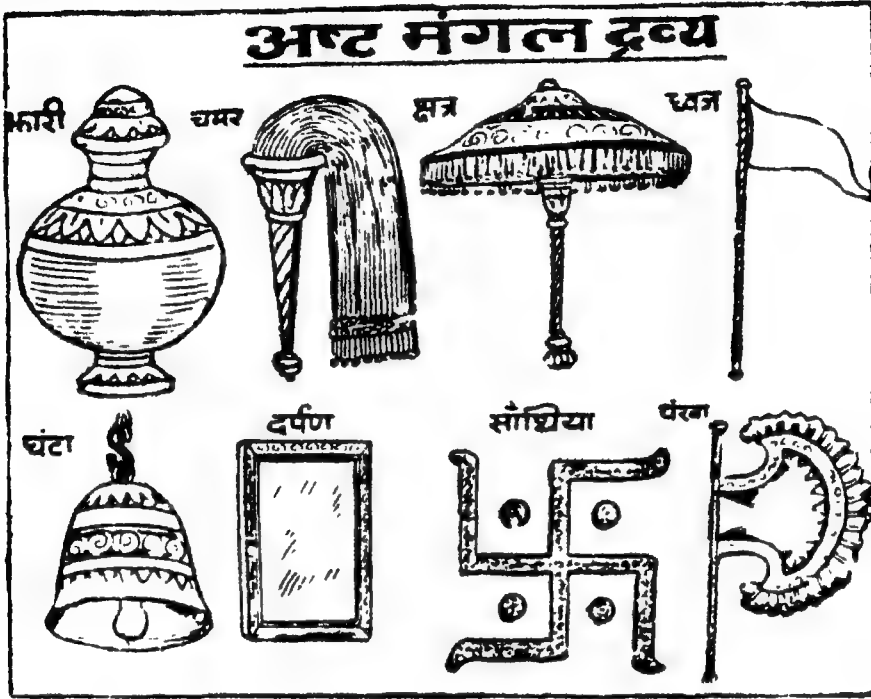 अष्ट मंगल द्रव्य
झारी
चमर
क्षत्र
ध्वज
घंटा
दर्पण
साँथिया
पंखा